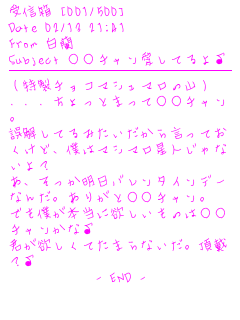 受信箱 [001/500]
Date 02/13 21:41
From 白蘭
Subject 〇〇チャン愛してるよ♪
(特製チョコマシュマロの山)
...ちょっとまって〇〇チャン
。
誤解してるみたいだから言ってお
くけど、僕はマシマロ星人じゃな
いよ?
あ、そっか明日バレンタインデー
なんだ。ありがと〇〇チャン。
でも僕が本当に欲しいものは〇〇
チャンかな♪
君が欲しくてたまらないだ。頂戴
?♪
- END -